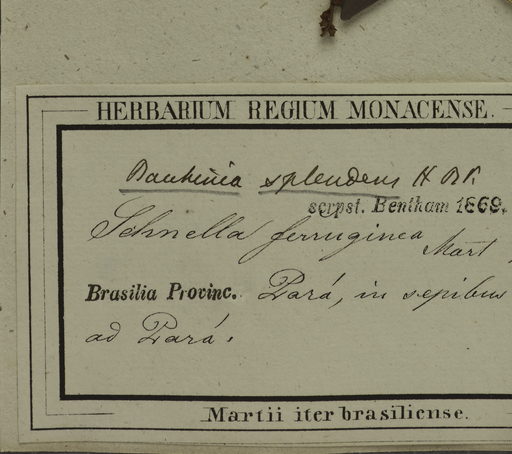 HERBARIUM REGIUM MONACENSE.
Bauhinia splendens H B K.
scrpst. Bentham 1869.
Schnella ferruginea Mart
Brasilia Provinc. Pará, in sepibus
ad Pará.
Martii iter brasiliense.